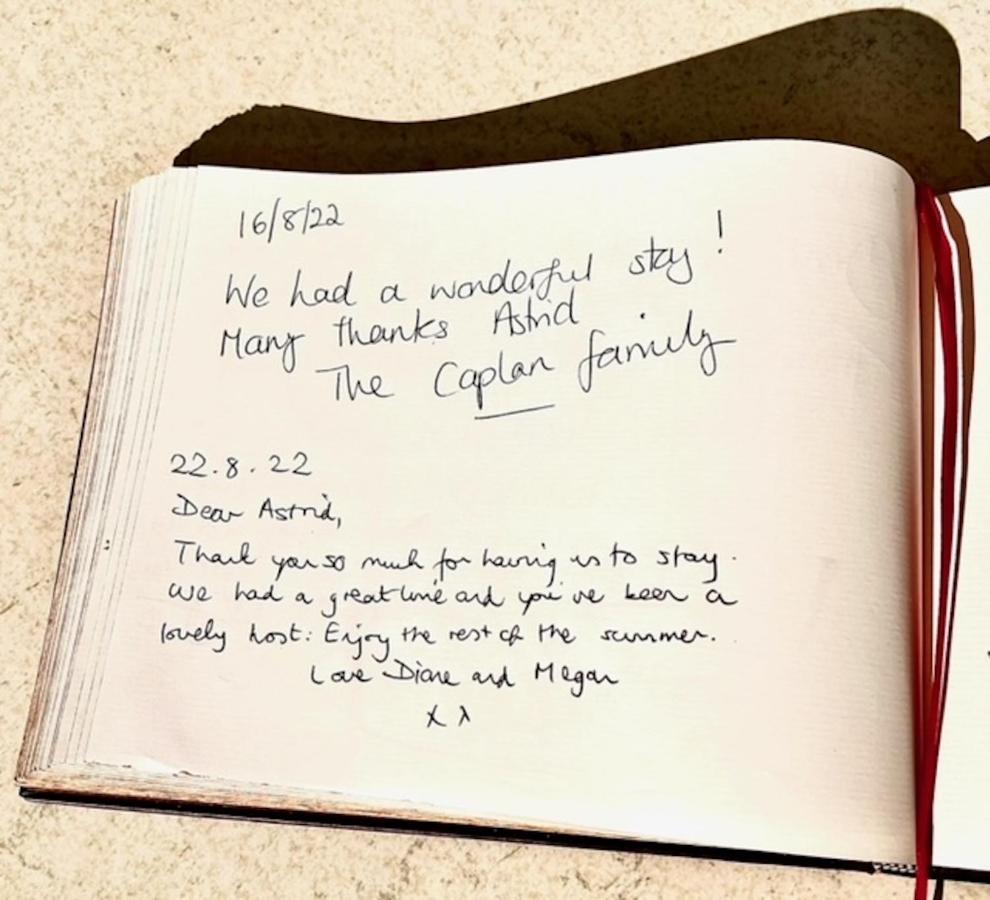 16/8/22
We had a wonderful stay !
Many thanks Astrid
The Caplan family
22.8.22
Dear Astrid,
Thank you so much for having us to stay.
We had a great time and you've been a
lovely host. Enjoy the rest of the summer.
Love Diane and Megan
x x